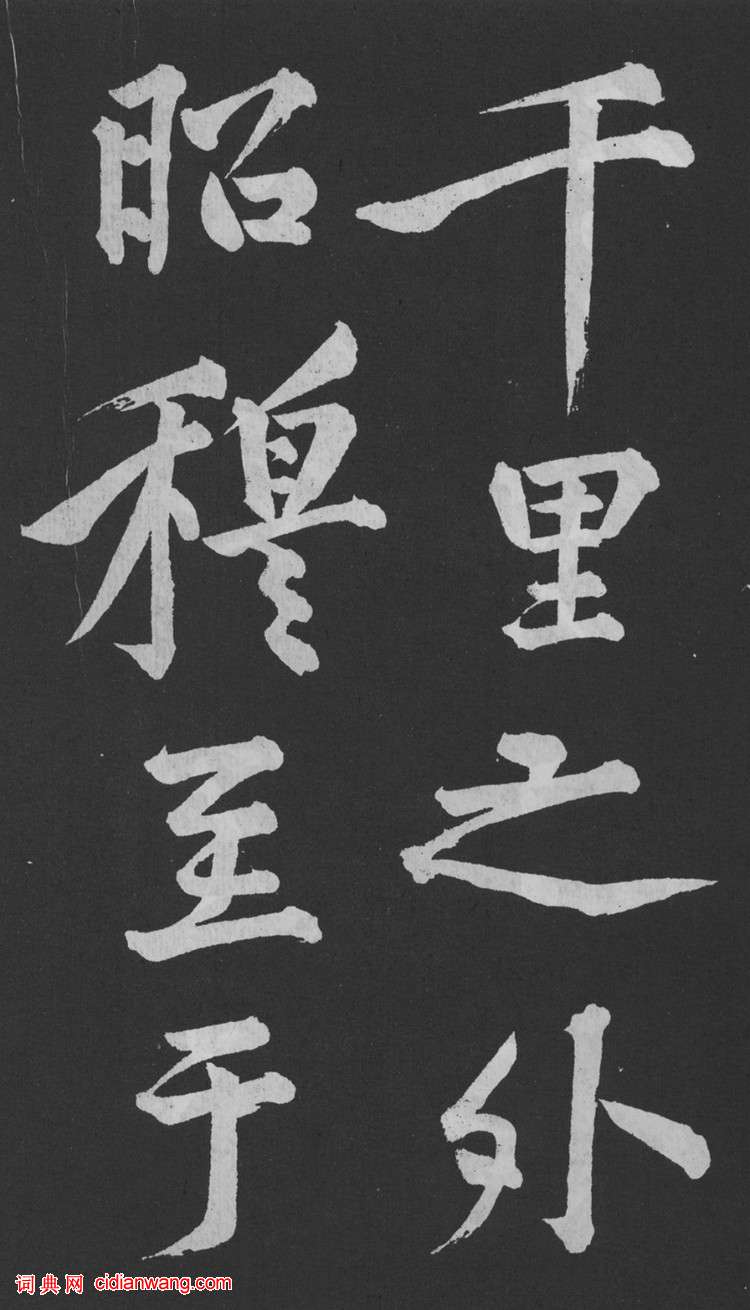 千里之外
昭穆至于
词典网 cidianwang.com